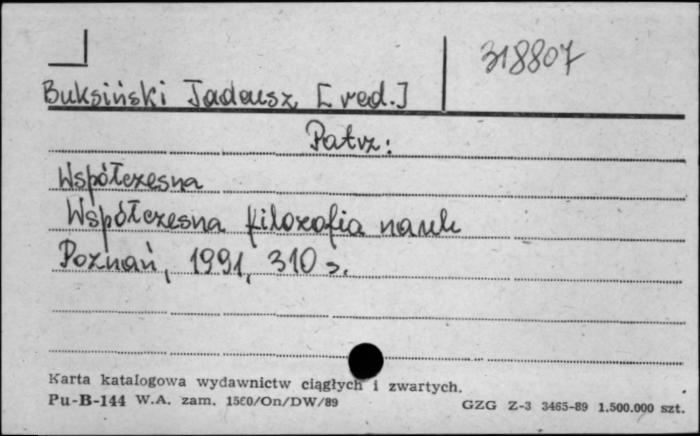 318807
Buksiński Tadeusz [red.]
Patrz:
Współczesna
Współczesna filozofia nauk
Poznań, 1991, 310 s.
Karta katalogowa wydawnictw ciągłych i zwartych.
Pu-B-144 W.A. zam. 1560/On/DW/89
GZG Z-3 3465-89 1.500.000 szt.